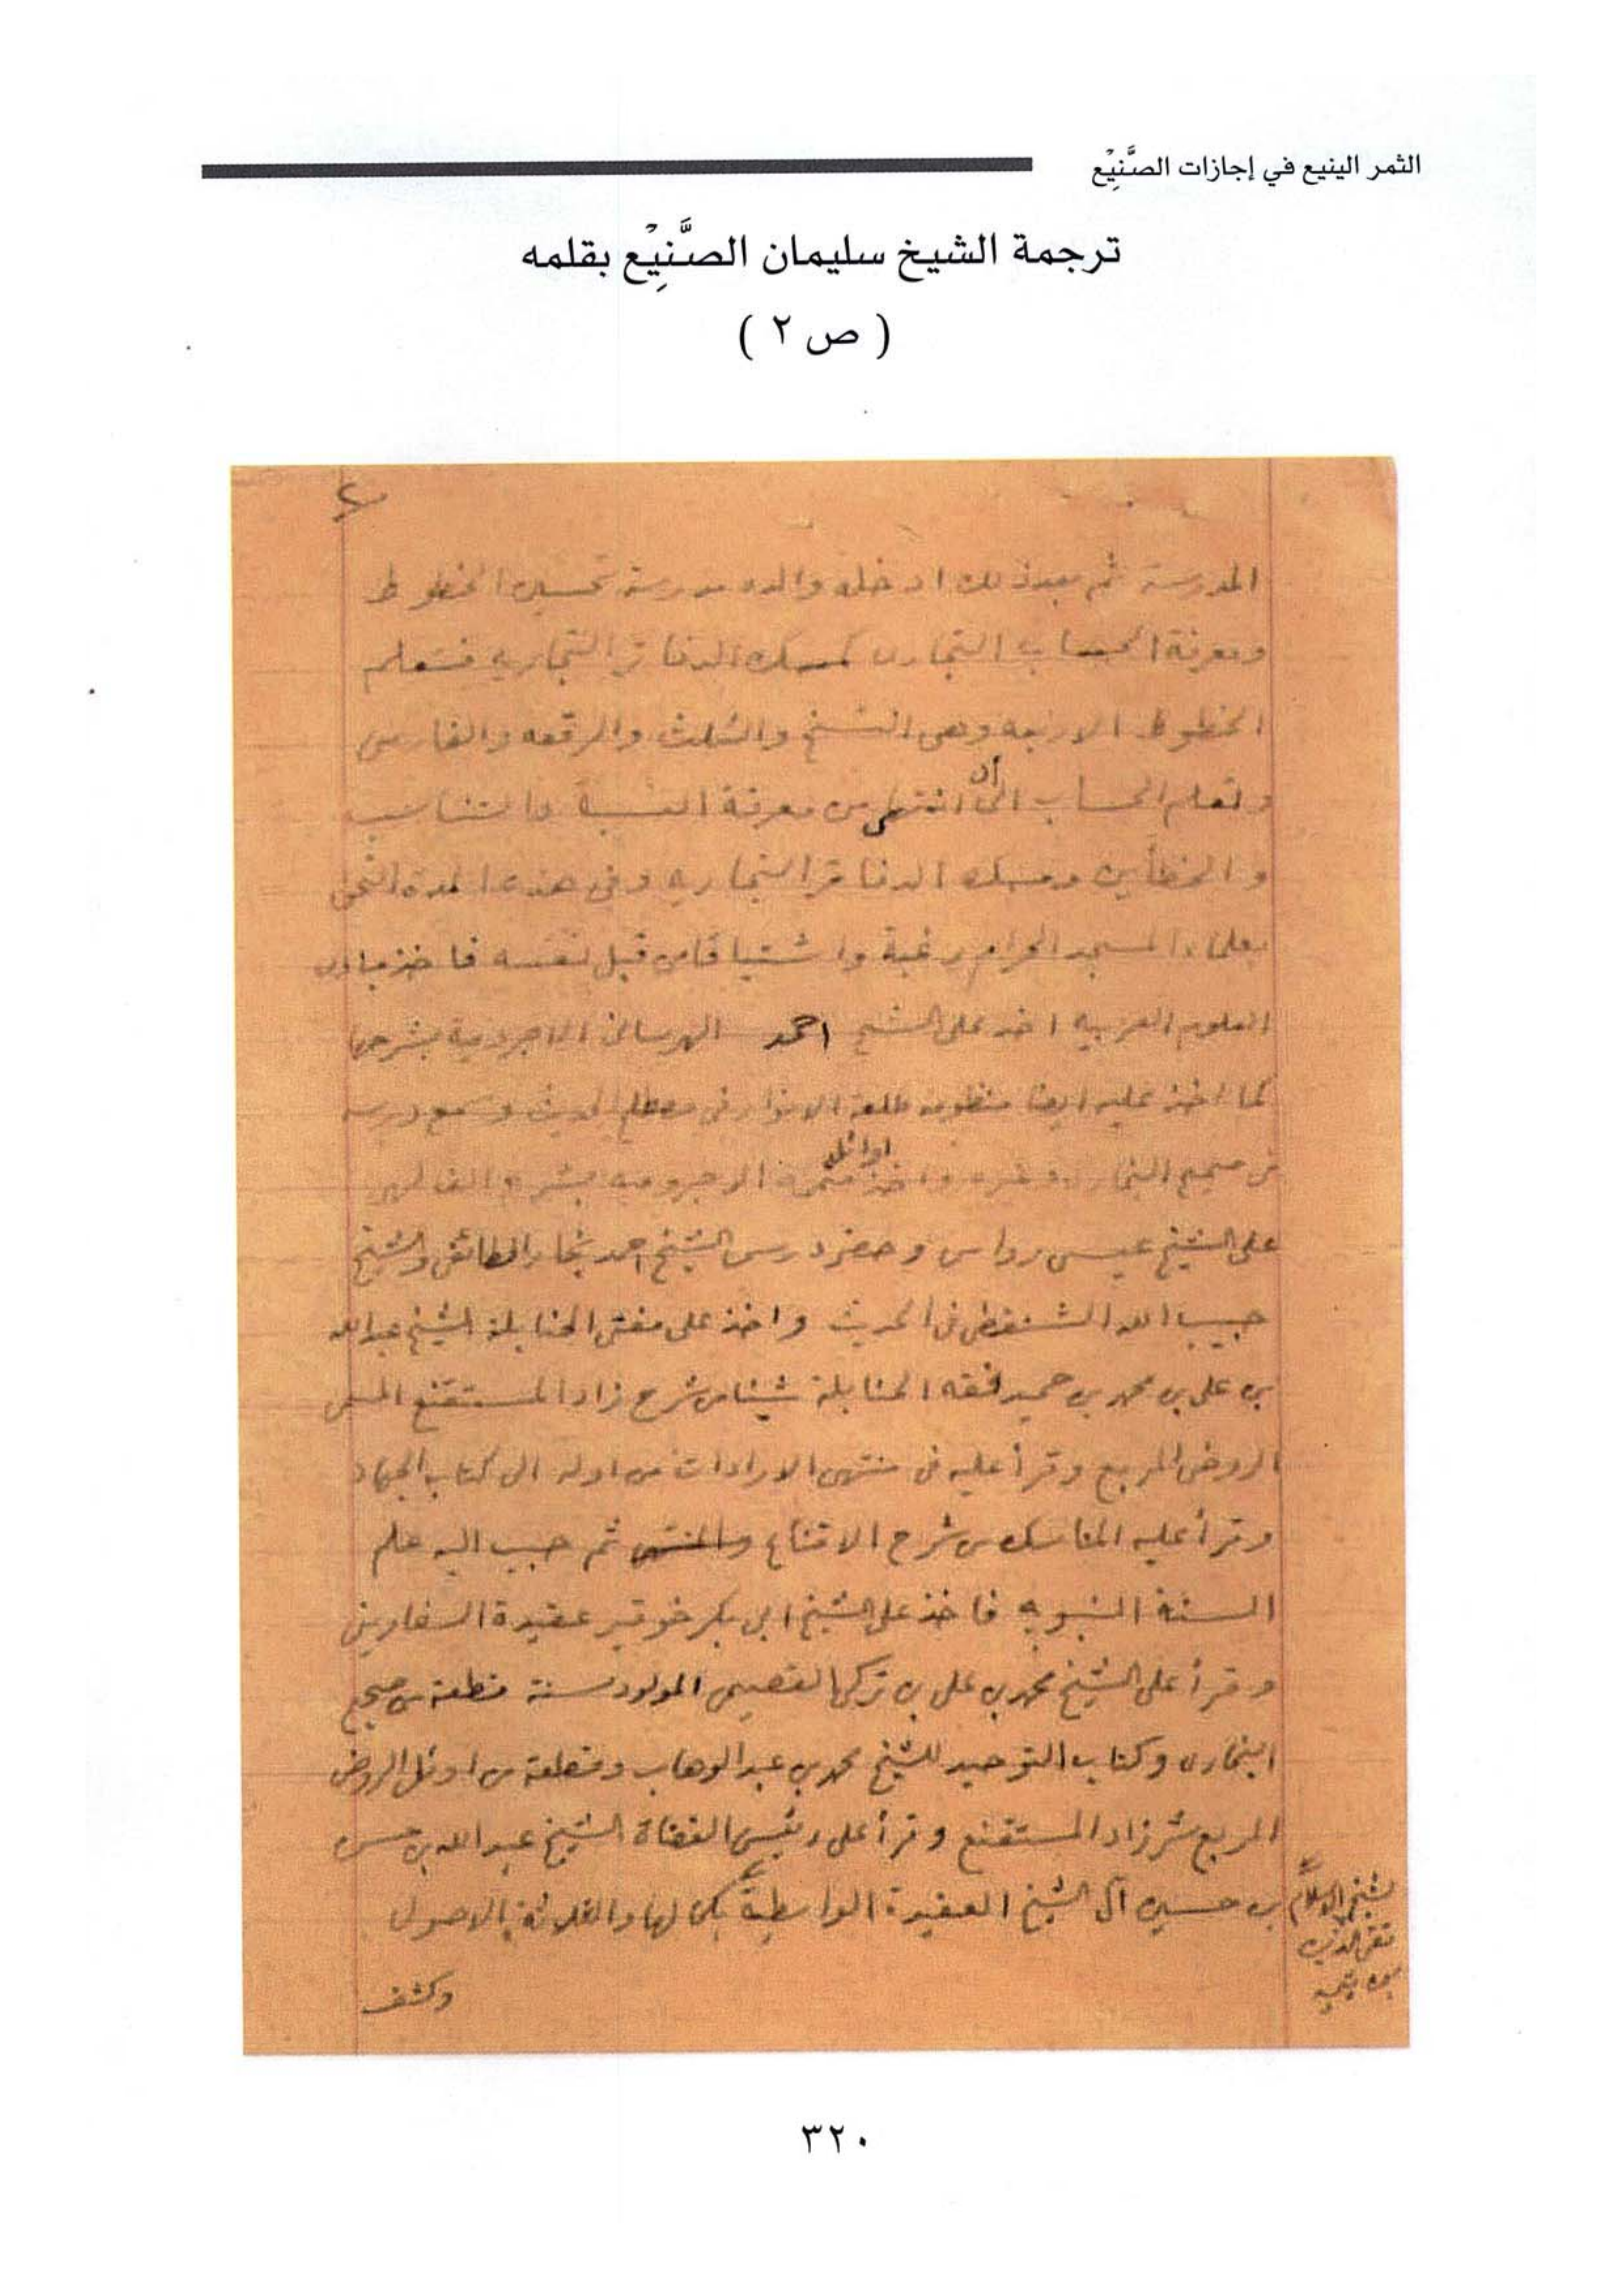 الثمر الينيع في إجازات الصَّنِيْع
ترجمة الشيخ سليمان الصَّنِيْع بقلمه
( ص ٢ )
٢
المدرسة ثم بعد ذلك ادخله والده مدرسة تحسين الخطوط
ومعرفة الحساب التجارى كمسك الدفاتر التجاريه فتعلم
الخطوط الاربعه وهى النسخ والثلث والرقعه والفارسى
وتعلم الحساب الى أن انتهى من معرفة النسبة والتناسب
والخطأين ومسك الدفاتر التجاريه وفي هذه المدة التحق
بعلماء المسجد الحرام رغبة واشتياقا من قبل نفسه فاخذ مبادى
العلوم العربيه اخذ على الشيخ احمد الهرسانى الاجرومية بشرحها
كما اخذ عليه ايضا منظومة طلعة الانوار في مصطلح الحديث وسمع دروسه
فى صحيح البخارى وغيره واخذ اوائل متممة الاجروميه بشرح الفاكهى
على الشيخ عيسى رواس وحضر دروس الشيخ احمد نجار الطائفى والشيخ
حبيب الله الشنقطى فى الحديث واخذ على مفتى الحنابلة الشيخ عبدالله
بن على بن محمد بن حميد فقه الحنابلة شيئا من شرح زاد المستقنع المسمى
الروض المربع وقرأ عليه فى منتهى الارادات من اوله الى كتاب الجهاد
وقرأ عليه المناسك من شرح الاقناع والمنتهى ثم حبب اليه علم
السنة النبويه فاخذ على الشيخ ابى بكر خوقير عقيدة السفارينى
وقرأ على الشيخ محمد بن على بن تركى القصيمى المولود سنة قطعة من صحيح
البخارى وكتاب التوحيد للشيخ محمد بن عبد الوهاب وقطعة من اوئل الروض
المربع شر زاد المستقنع وقرأ على رئيس القضاة الشيخ عبد الله بن حسن
بن حسين آل الشيخ العقيدة الواسطية بكمالها والثلاثة الاصول
لشيخ الاسلام
تقى الدين
بن تيميه
وكشف
٣٢٠